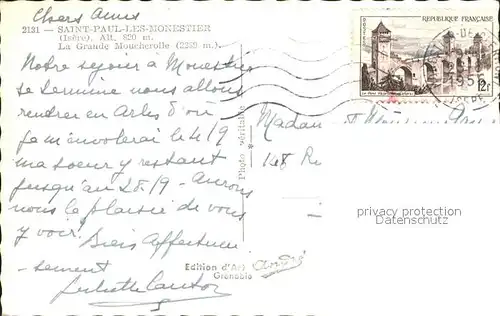 Chers Amis
2131 - SAINT-PAUL-LES-MONESTIER
(Isère), Alt. 820 m.
La Grande Moucherolle (2289 m.)
Notre séjour à Monestier
se termine nous allons
rentrer en Arles d'où
je m'envolerai le 4/9
ma soeur y restant
jusqu'au 28/9 - Aurons
nous le plaisir de vous
y voir? Bien affectueu
sement
Juliette
Photo véritable
Edition d'Art André
Grenoble
RÉPUBLIQUE FRANÇAISE
CAHORS
12F
1956
Madame
148 R
privacy protection
AnsichtskartenVersand